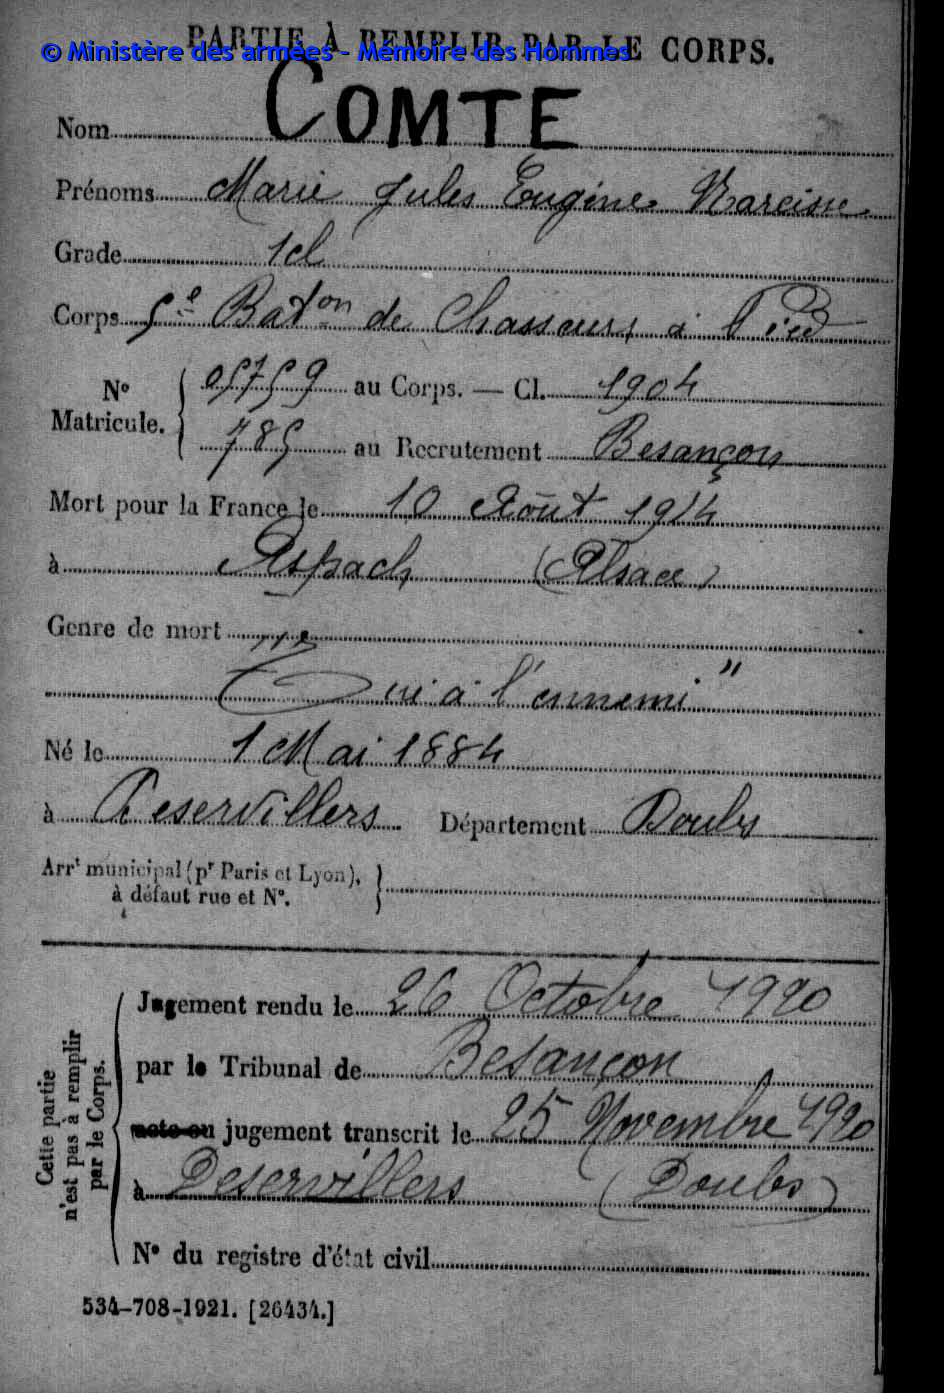 PARTIE À REMPLIR PAR LE CORPS.
© Ministère des armées - Mémoire des Hommes
Nom COMTE
Prénoms Marie Jules Eugène Narcisse
Grade 1cl
Corps 5e Baton de Chasseurs à Pied
No Matricule. { 05759 au Corps. — Cl. 1904
785 au Recrutement Besançon
Mort pour la France le 10 Août 1914
à Aspach (Alsace)
Genre de mort
"Tué à l'ennemi"
Né le 1 Mai 1884
à Deservillers Département Doubs
Arrt municipal (pr Paris et Lyon), }
à défaut rue et No.
Cette partie n'est pas à remplir par le Corps.
Jugement rendu le 26 Octobre 1920
par le Tribunal de Besançon
acte ou jugement transcrit le 25 Novembre 1920
à Deservillers (Doubs)
No du registre d'état civil
534-708-1921. [26434.]